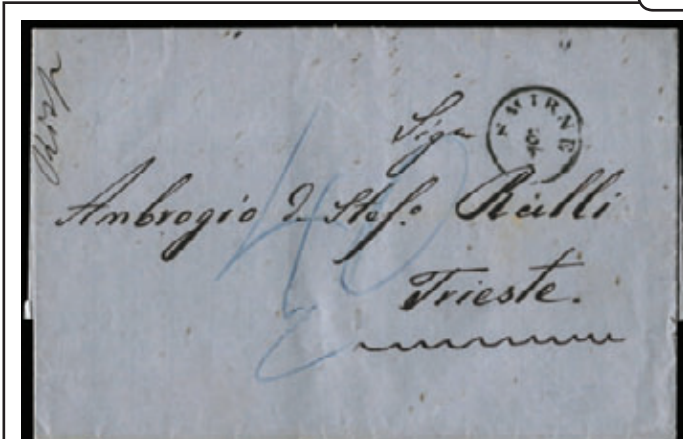 Sigr
SMIRNE
Ambrogio d. Stef.o Ralli
40
Trieste.